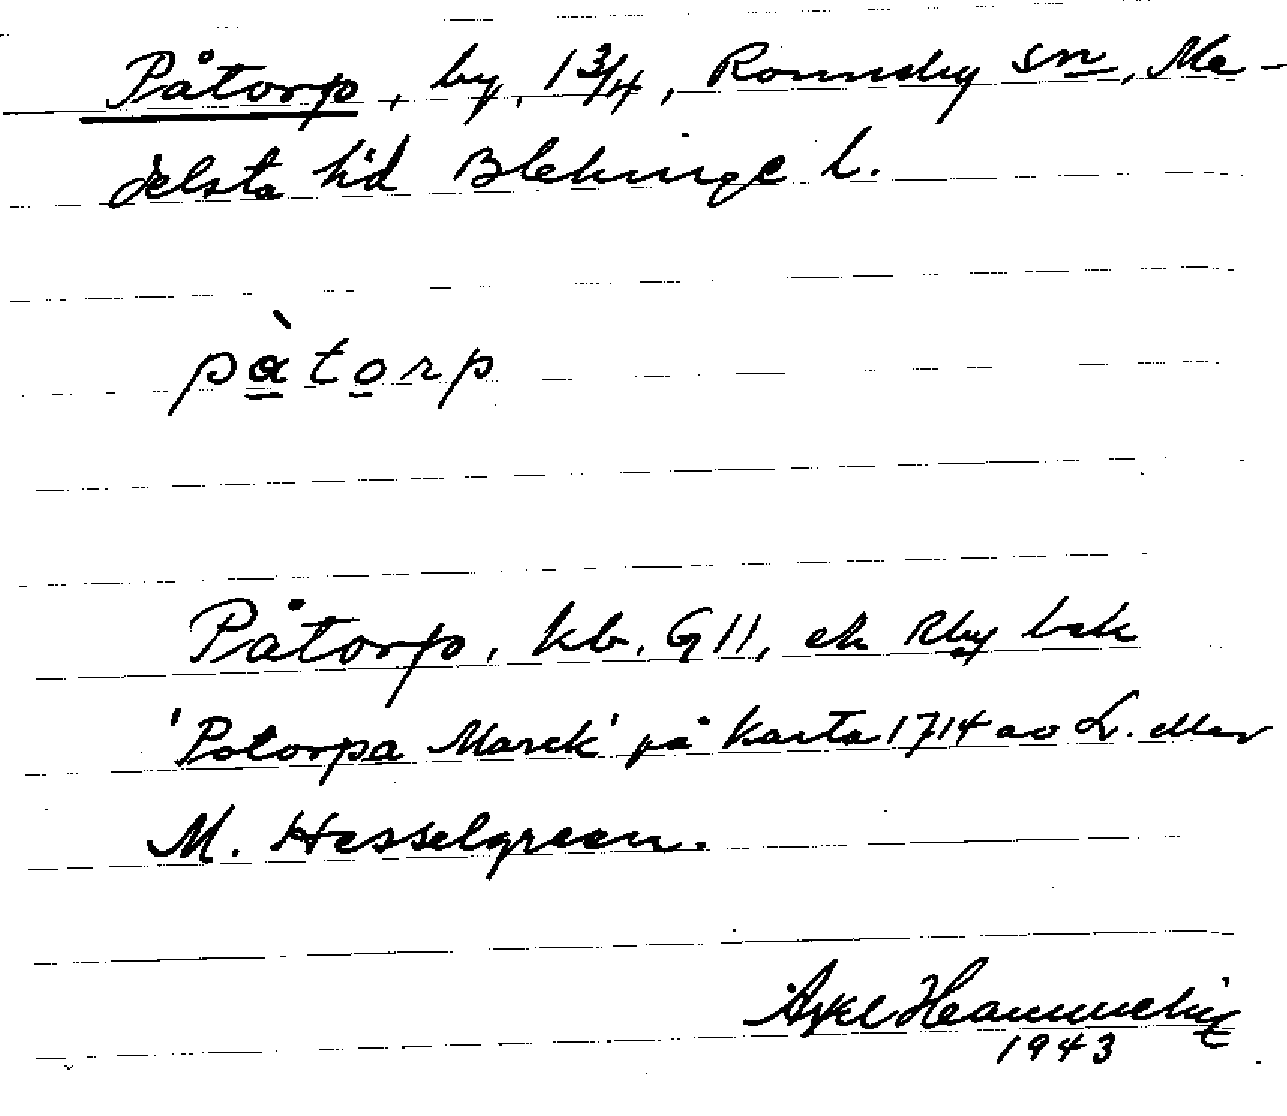 Påtorp, by, 1 3/4, Ronneby sn, Me-
delsta hd Blekinge l.
pàtorp
Påtorp, kb. G11, ek Rby bek
'Potorpa Marck' på karta 1714 av L. eller
M. Hesselgreen.
Axel
1943